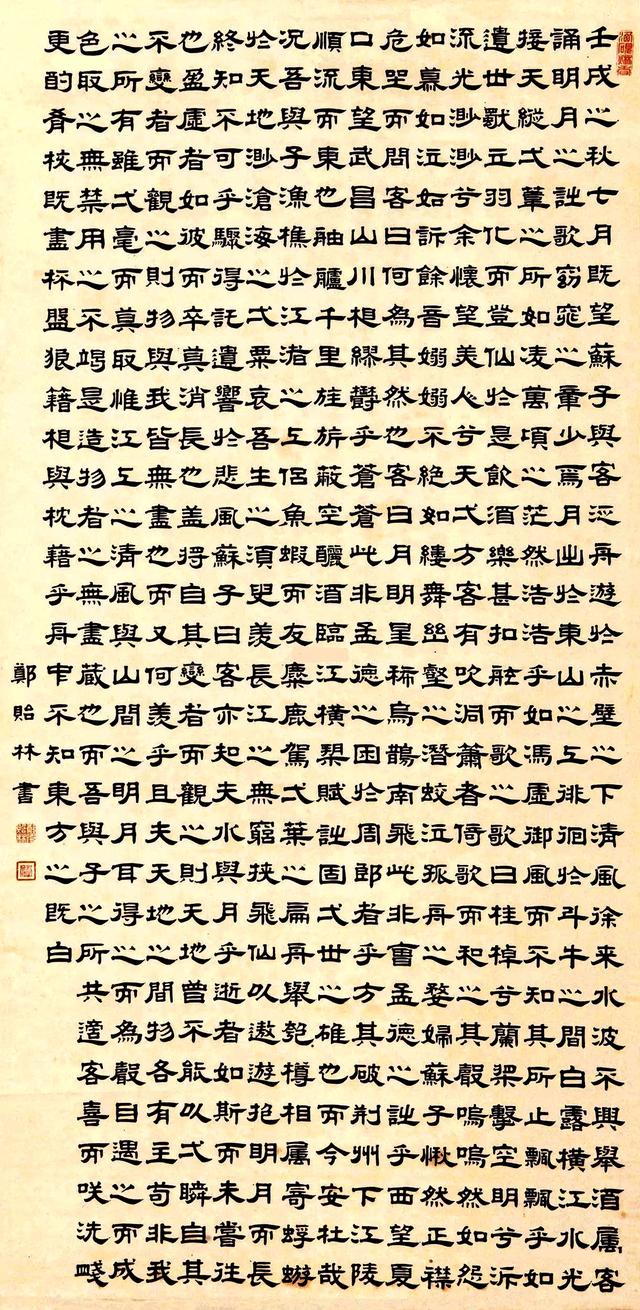 壬戌之秋七月既望蘇子與客泛舟遊於赤壁之下清風徐來水波不興舉酒屬客
誦明月之詩歌窈窕之章少焉月出於東山之上徘徊於斗牛之間白露橫江水光
接天縱一葦之所如凌萬頃之茫然浩浩乎如馮虛御風而不知其所止飄飄乎如
遺世獨立羽化而登仙於是飲酒樂甚扣舷而歌之歌曰桂棹兮蘭槳擊空明兮泝
流光渺渺兮余懷望美人兮天一方客有吹洞簫者倚歌而和之其聲嗚嗚然如怨
如慕如泣如訴餘音嫋嫋不絕如縷舞幽壑之潛蛟泣孤舟之嫠婦蘇子愀然正襟
危坐而問客曰何為其然也客曰月明星稀烏鵲南飛此非曹孟德之詩乎西望夏
口東望武昌山川相繆鬱乎蒼蒼此非孟德之困於周郎者乎方其破荊州下江陵
順流而東也舳艫千里旌旂蔽空釃酒臨江橫槊賦詩固一世之雄也而今安在哉
況吾與子漁樵於江渚之上侶魚蝦而友麋鹿駕一葉之扁舟舉匏樽相屬寄蜉蝣
於天地渺滄海之一粟哀吾生之須臾羨長江之無窮挾飛仙以遨遊抱明月而長
終知不可乎驟得託遺響於悲風蘇子曰客亦知夫水與月乎逝者如斯而未嘗往
也盈虛者如彼而卒莫消長也蓋將自其變者而觀之則天地曾不能以一瞬自其
不變者而觀之則物與我皆無盡也而又何羨乎且夫天地之間物各有主苟非我
之所有雖一毫而莫取惟江上之清風與山間之明月耳得之而為聲目遇之而成
色取之無禁用之不竭是造物者之無盡藏也而吾與子之所共適客喜而笑洗盞
更酌肴核既盡杯盤狼藉相與枕藉乎舟中不知東方之既白
鄭貽林書